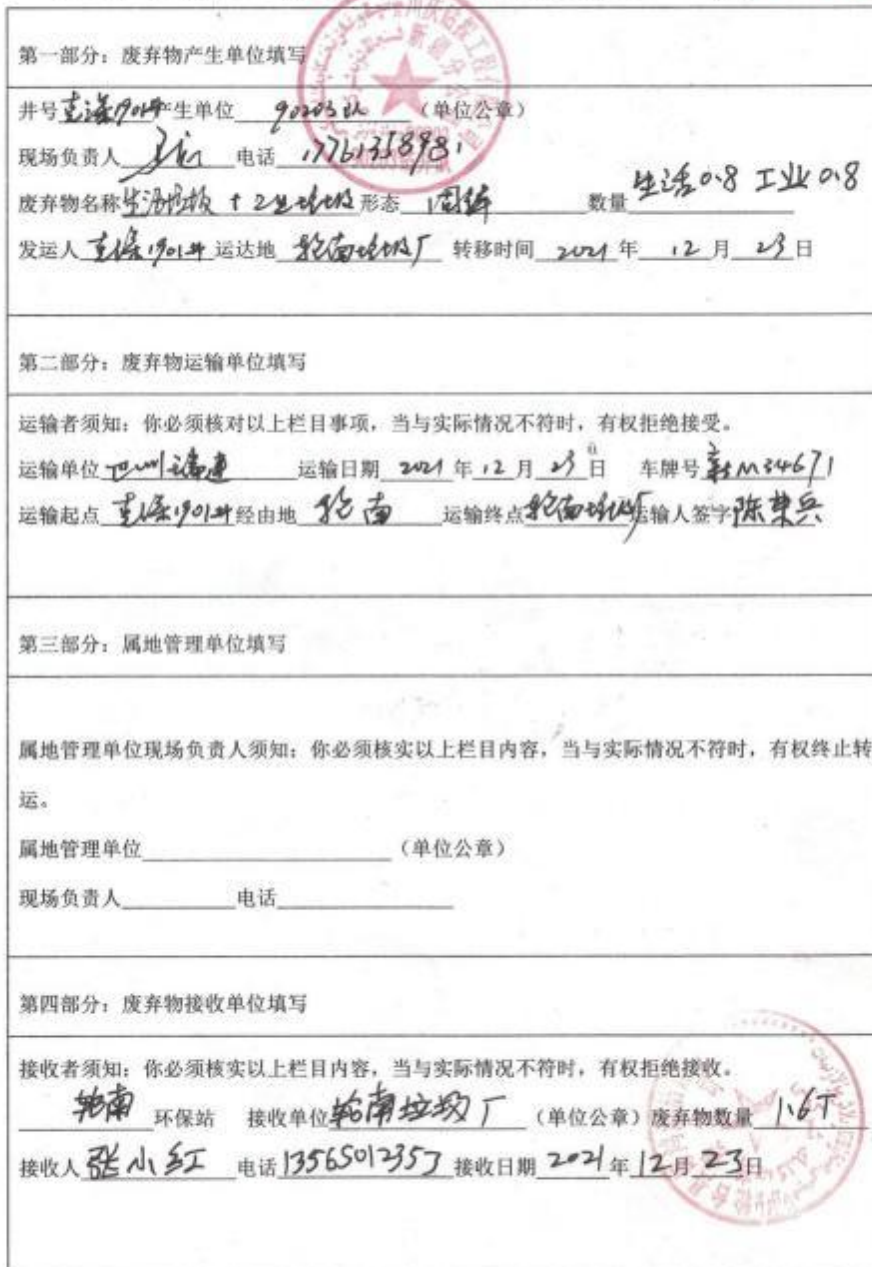 川庆钻探工程有限公司
新疆分公司
第一部分：废弃物产生单位填写
井号 克深1901井 产生单位 90203队 （单位公章）
现场负责人 电话 17761358981
废弃物名称 生活垃圾+工业垃圾 形态 固体 数量 生活0.8 工业0.8
发运人 克深1901井 运达地 轮南垃圾厂 转移时间 2021 年 12 月 23 日
第二部分：废弃物运输单位填写
运输者须知：你必须核对以上栏目事项，当与实际情况不符时，有权拒绝接受。
运输单位 运输日期 2021 年 12 月 23 日 车牌号 新M34671
运输起点 克深1901井 经由地 轮南 运输终点 轮南垃圾厂 运输人签字 陈荣兵
第三部分：属地管理单位填写
属地管理单位现场负责人须知：你必须核实以上栏目内容，当与实际情况不符时，有权终止转
运。
属地管理单位 （单位公章）
现场负责人 电话
第四部分：废弃物接收单位填写
接收者须知：你必须核实以上栏目内容，当与实际情况不符时，有权拒绝接收。
轮南 环保站 接收单位 轮南垃圾厂 （单位公章）废弃物数量 1.6T
接收人 张小红 电话 13565012357 接收日期 2021 年 12 月 23 日